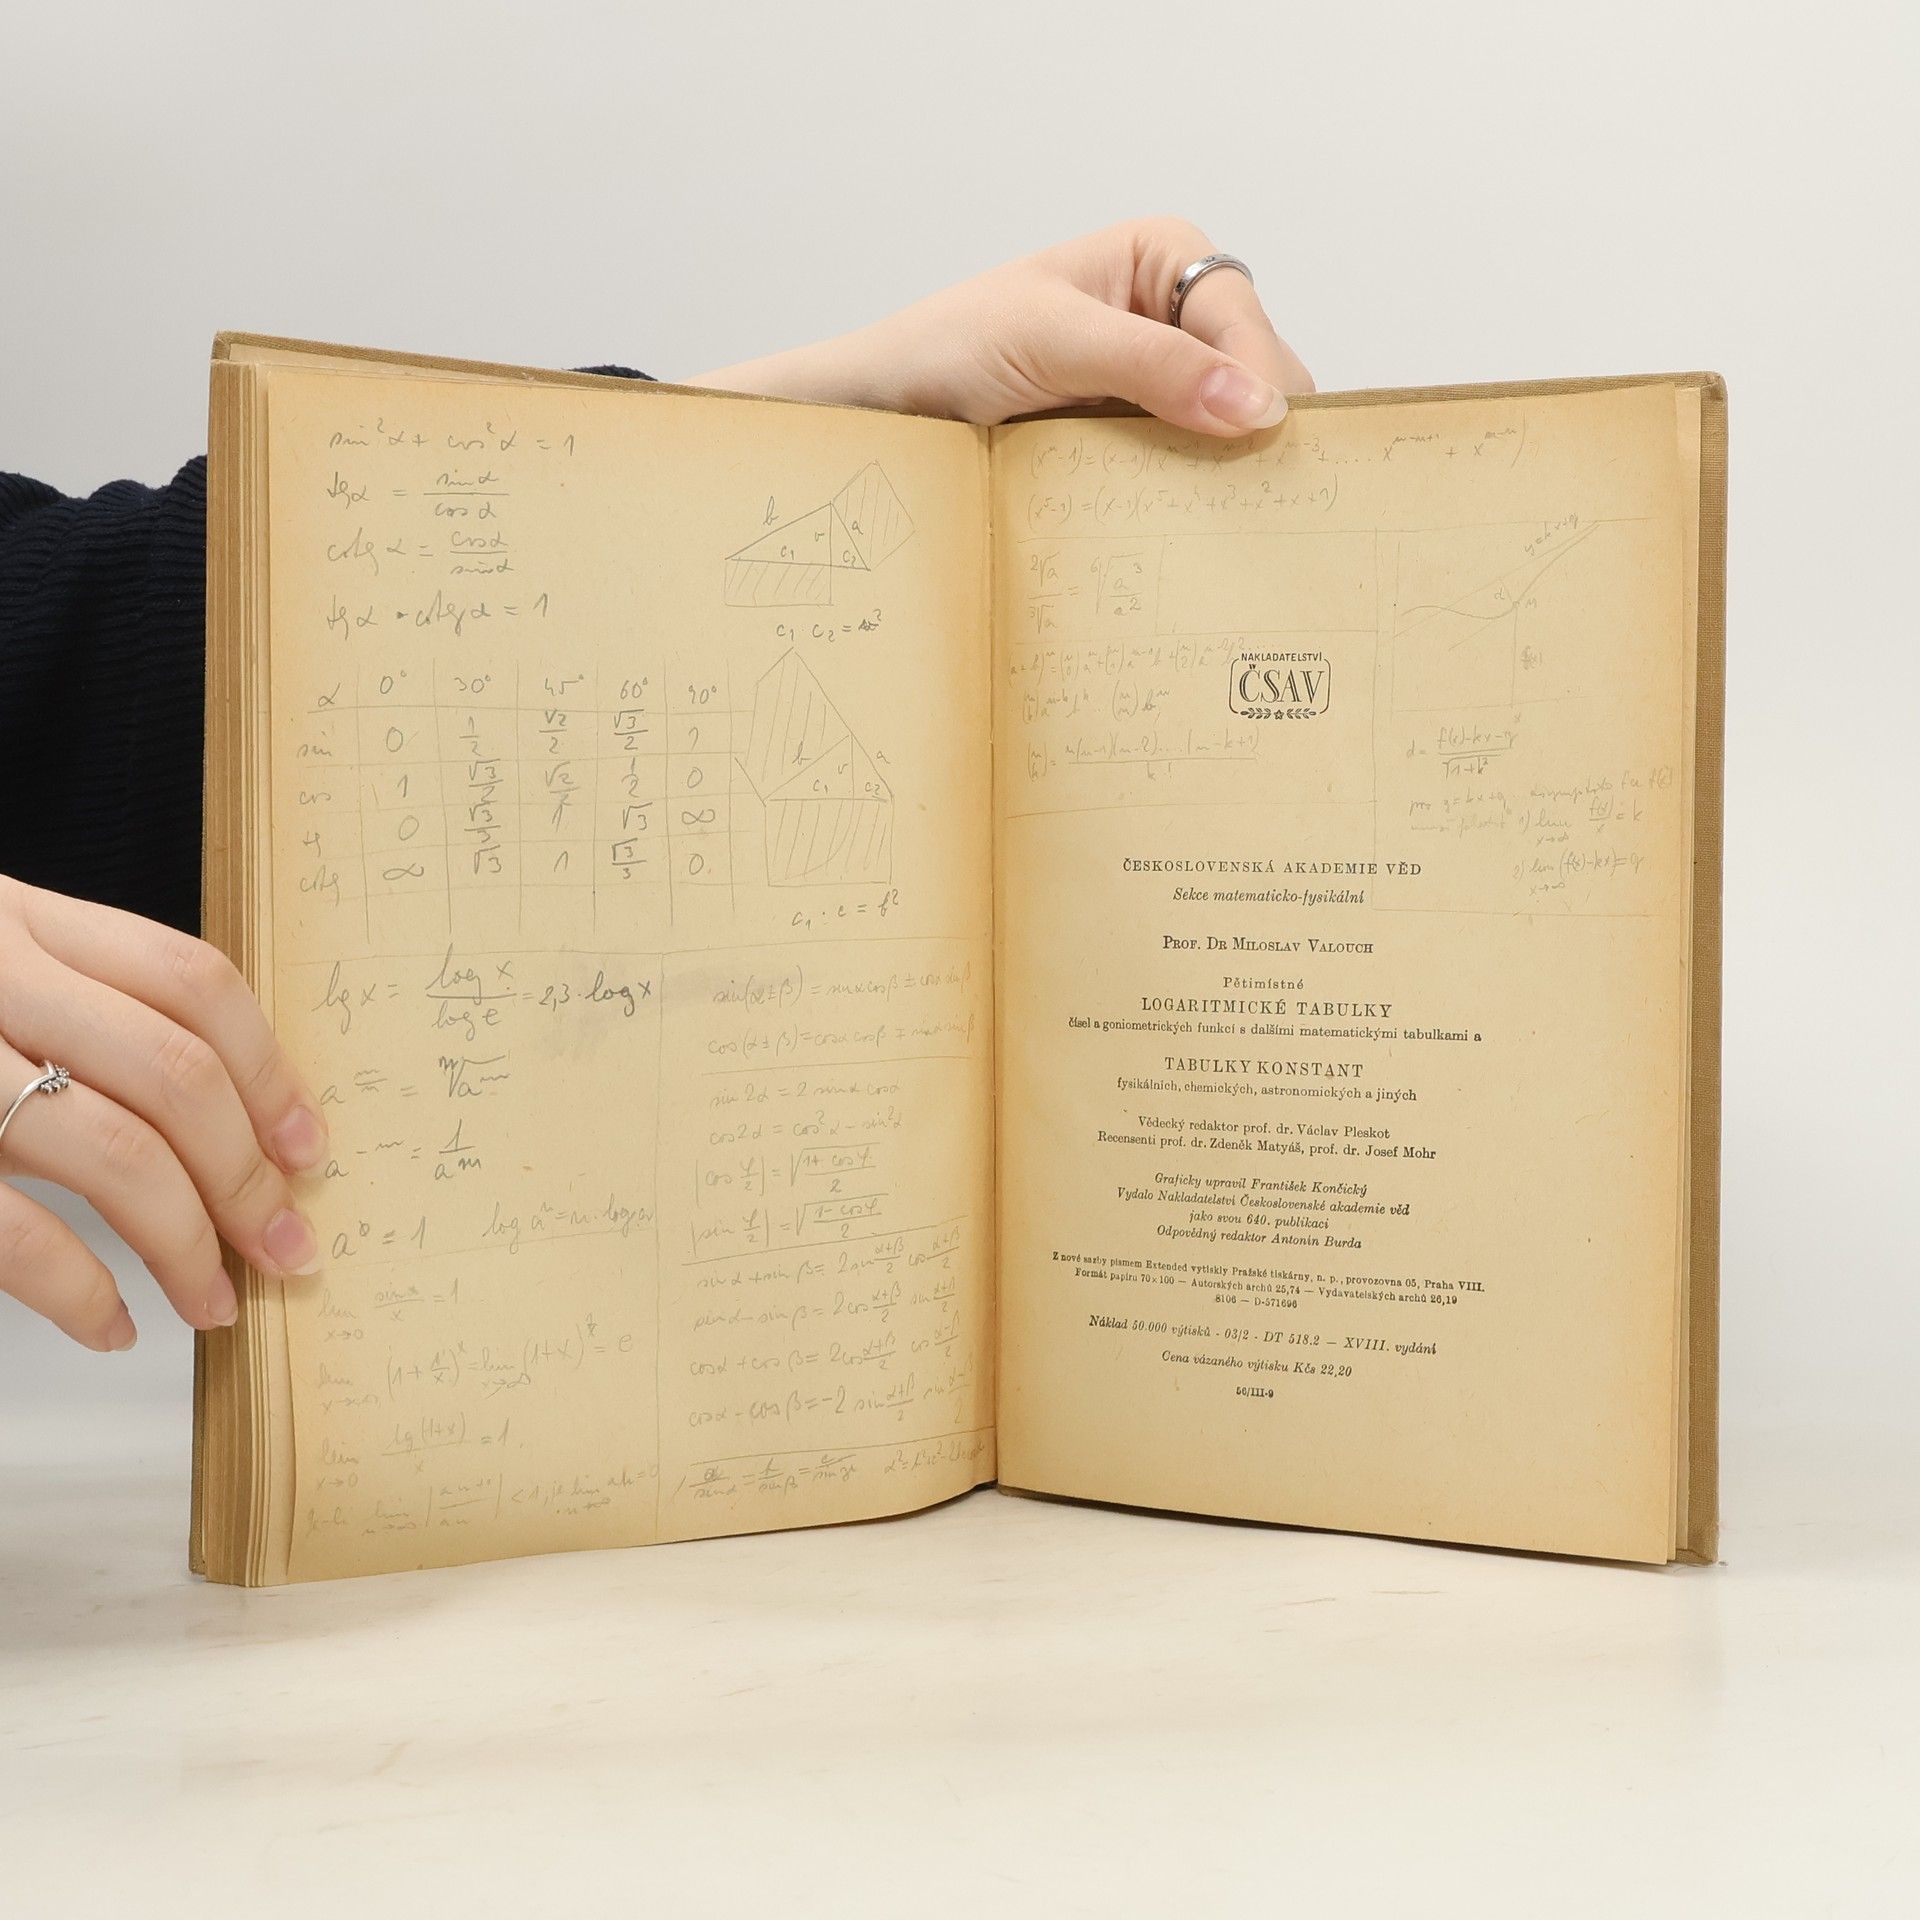 sin²α + cos²α = 1
tgα = sinα / cosα
cotg α = cosα / sinα
tgα · cotgα = 1
c₁ · c₂ = v²
α 0° 30° 45° 60° 90°
sin 0 1/2 √2/2 √3/2 1
cos 1 √3/2 √2/2 1/2 0
tg 0 √3/3 1 √3 ∞
cotg ∞ √3 1 √3/3 0
b v a
c₁ c₂
b v a
c₁ c₂
c₁ · c = b²
lg x = log x / log e = 2,3 · log x
a^(m/n) = ⁿ√a^m
a^(-m) = 1 / a^m
a⁰ = 1 log aⁿ = n · log a
lim x→0 sin x / x = 1
lim x→∞ (1 + 1/x)^x = lim (1+x)^(1/x) = e
lim x→0 lg(1+x) / x = 1
sin(α ± β) = sinα cosβ ± cosα sinβ
cos(α ± β) = cosα cosβ ∓ sinα sinβ
sin 2α = 2 sinα cosα
cos 2α = cos²α − sin²α
|cos φ/2| = √((1 + cos φ) / 2)
|sin φ/2| = √((1 − cos φ) / 2)
sin α + sin β = 2 sin (α+β)/2 cos (α+β)/2
sin α − sin β = 2 cos (α+β)/2 sin (α+β)/2
cosα + cos β = 2 cos (α+β)/2 cos (α−β)/2
cosα − cos β = −2 sin (α+β)/2 sin (α−β)/2
(x⁵−1) = (x−1)(x⁵ + x⁴ + x³ + x² + x + 1)
²√a / ³√a = ⁶√(a³ / a²)
y = kx + q
NAKLADATELSTVÍ
ČSAV
d = (f(x) − kx − q) / √(1 + k²)
pro y = kx + q
1) lim x→∞ f(x)/x = k
2) lim x→∞ (f(x) − kx) = q
ČESKOSLOVENSKÁ AKADEMIE VĚD
Sekce matematicko-fysikální
PROF. DR MILOSLAV VALOUCH
Pětimístné
LOGARITMICKÉ TABULKY
čísel a goniometrických funkcí s dalšími matematickými tabulkami a
TABULKY KONSTANT
fysikálních, chemických, astronomických a jiných
Vědecký redaktor prof. dr. Václav Pleskot
Recensenti prof. dr. Zdeněk Matyáš, prof. dr. Josef Mohr
Graficky upravil František Končický
Vydalo Nakladatelství Československé akademie věd
jako svou 640. publikaci
Odpovědný redaktor Antonín Burda
Z nové sazby písmem Extended vytiskly Pražské tiskárny, n. p., provozovna 05, Praha VIII.
Formát papíru 70 × 100 — Autorských archů 25,74 — Vydavatelských archů 26,19
8106 — D-571696
Náklad 50.000 výtisků - 03/2 - DT 518.2 — XVIII. vydání
Cena vázaného výtisku Kčs 22,20
56/III-9